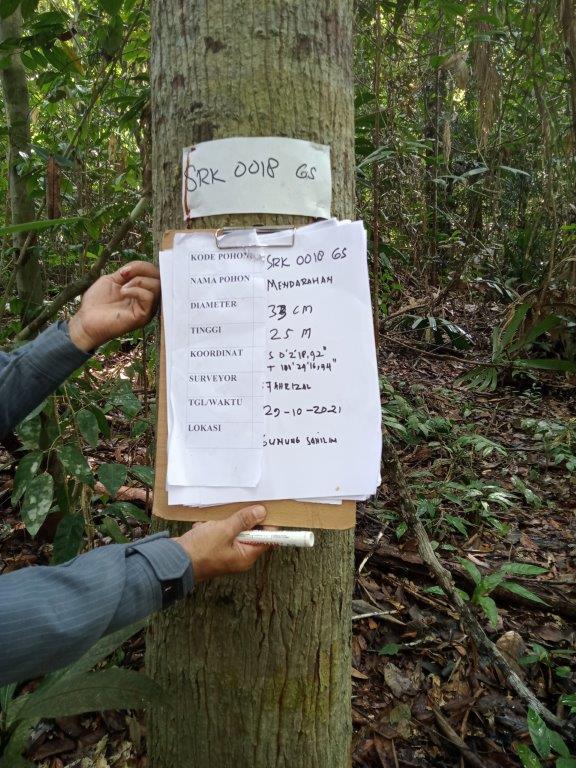 SRK 0018 GS
KODE POHON SRK 0018 GS
NAMA POHON MENDARAHAN
DIAMETER 33 CM
TINGGI 25 M
KOORDINAT S 0°2'18,92"
T 101°29'16,94"
SURVEYOR : FAHRIZAL
TGL/WAKTU 29-10-2021
LOKASI GUNUNG SAHILIN